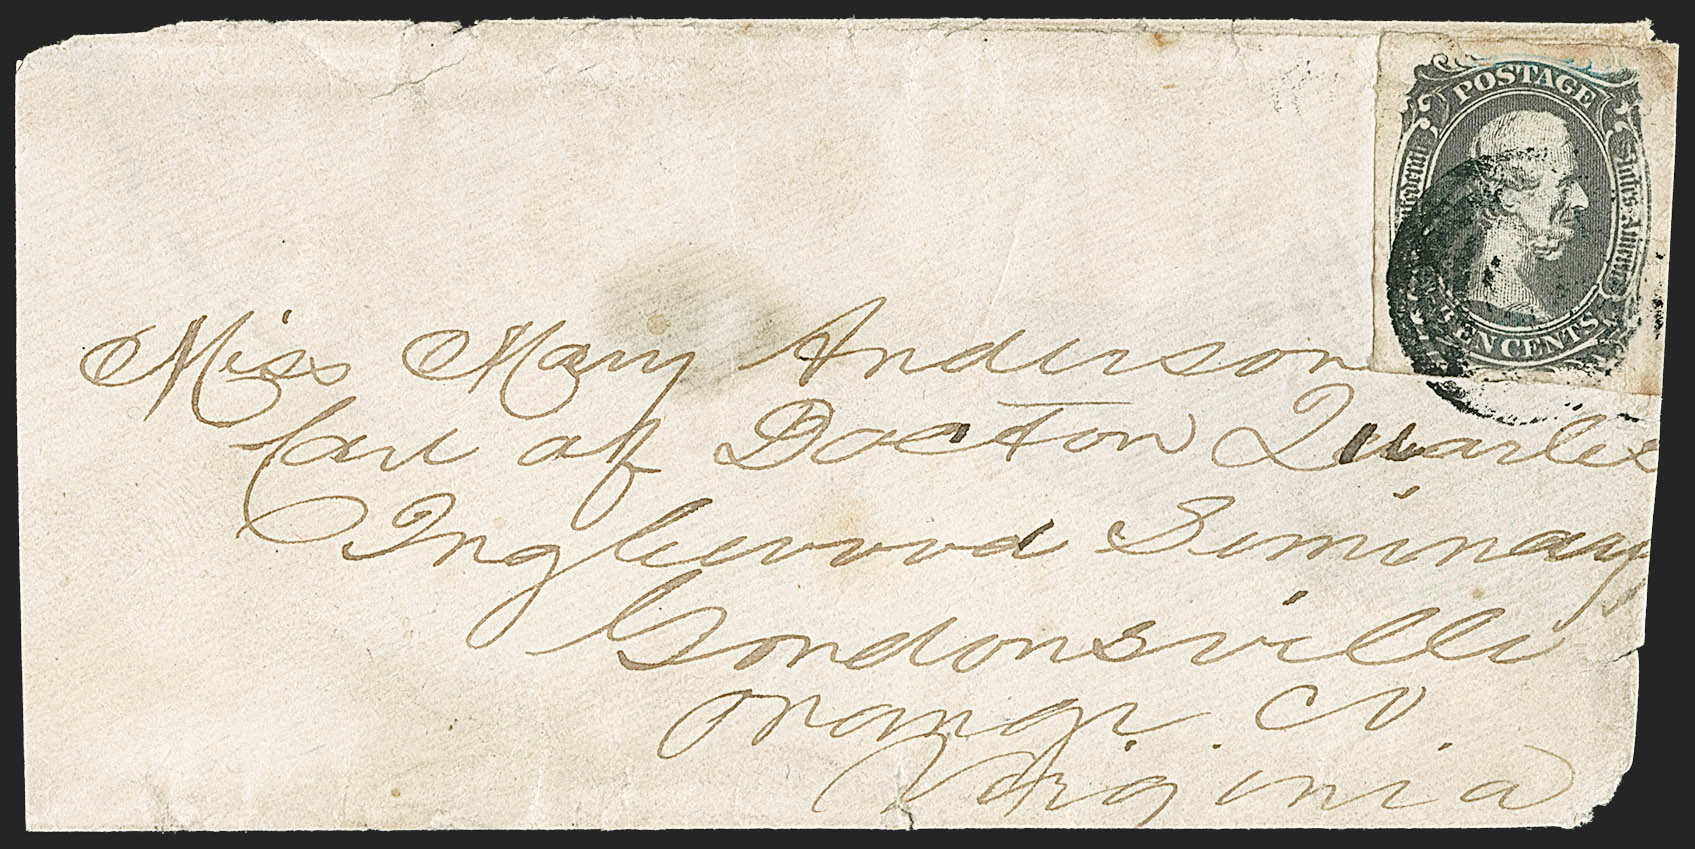 POSTAGE
Confederate States of America
TEN CENTS
Miss Mary Anderson
Care of Doctor Quarles
Inglewood Seminary
Gordonsville
Orange. Co.
Virginia